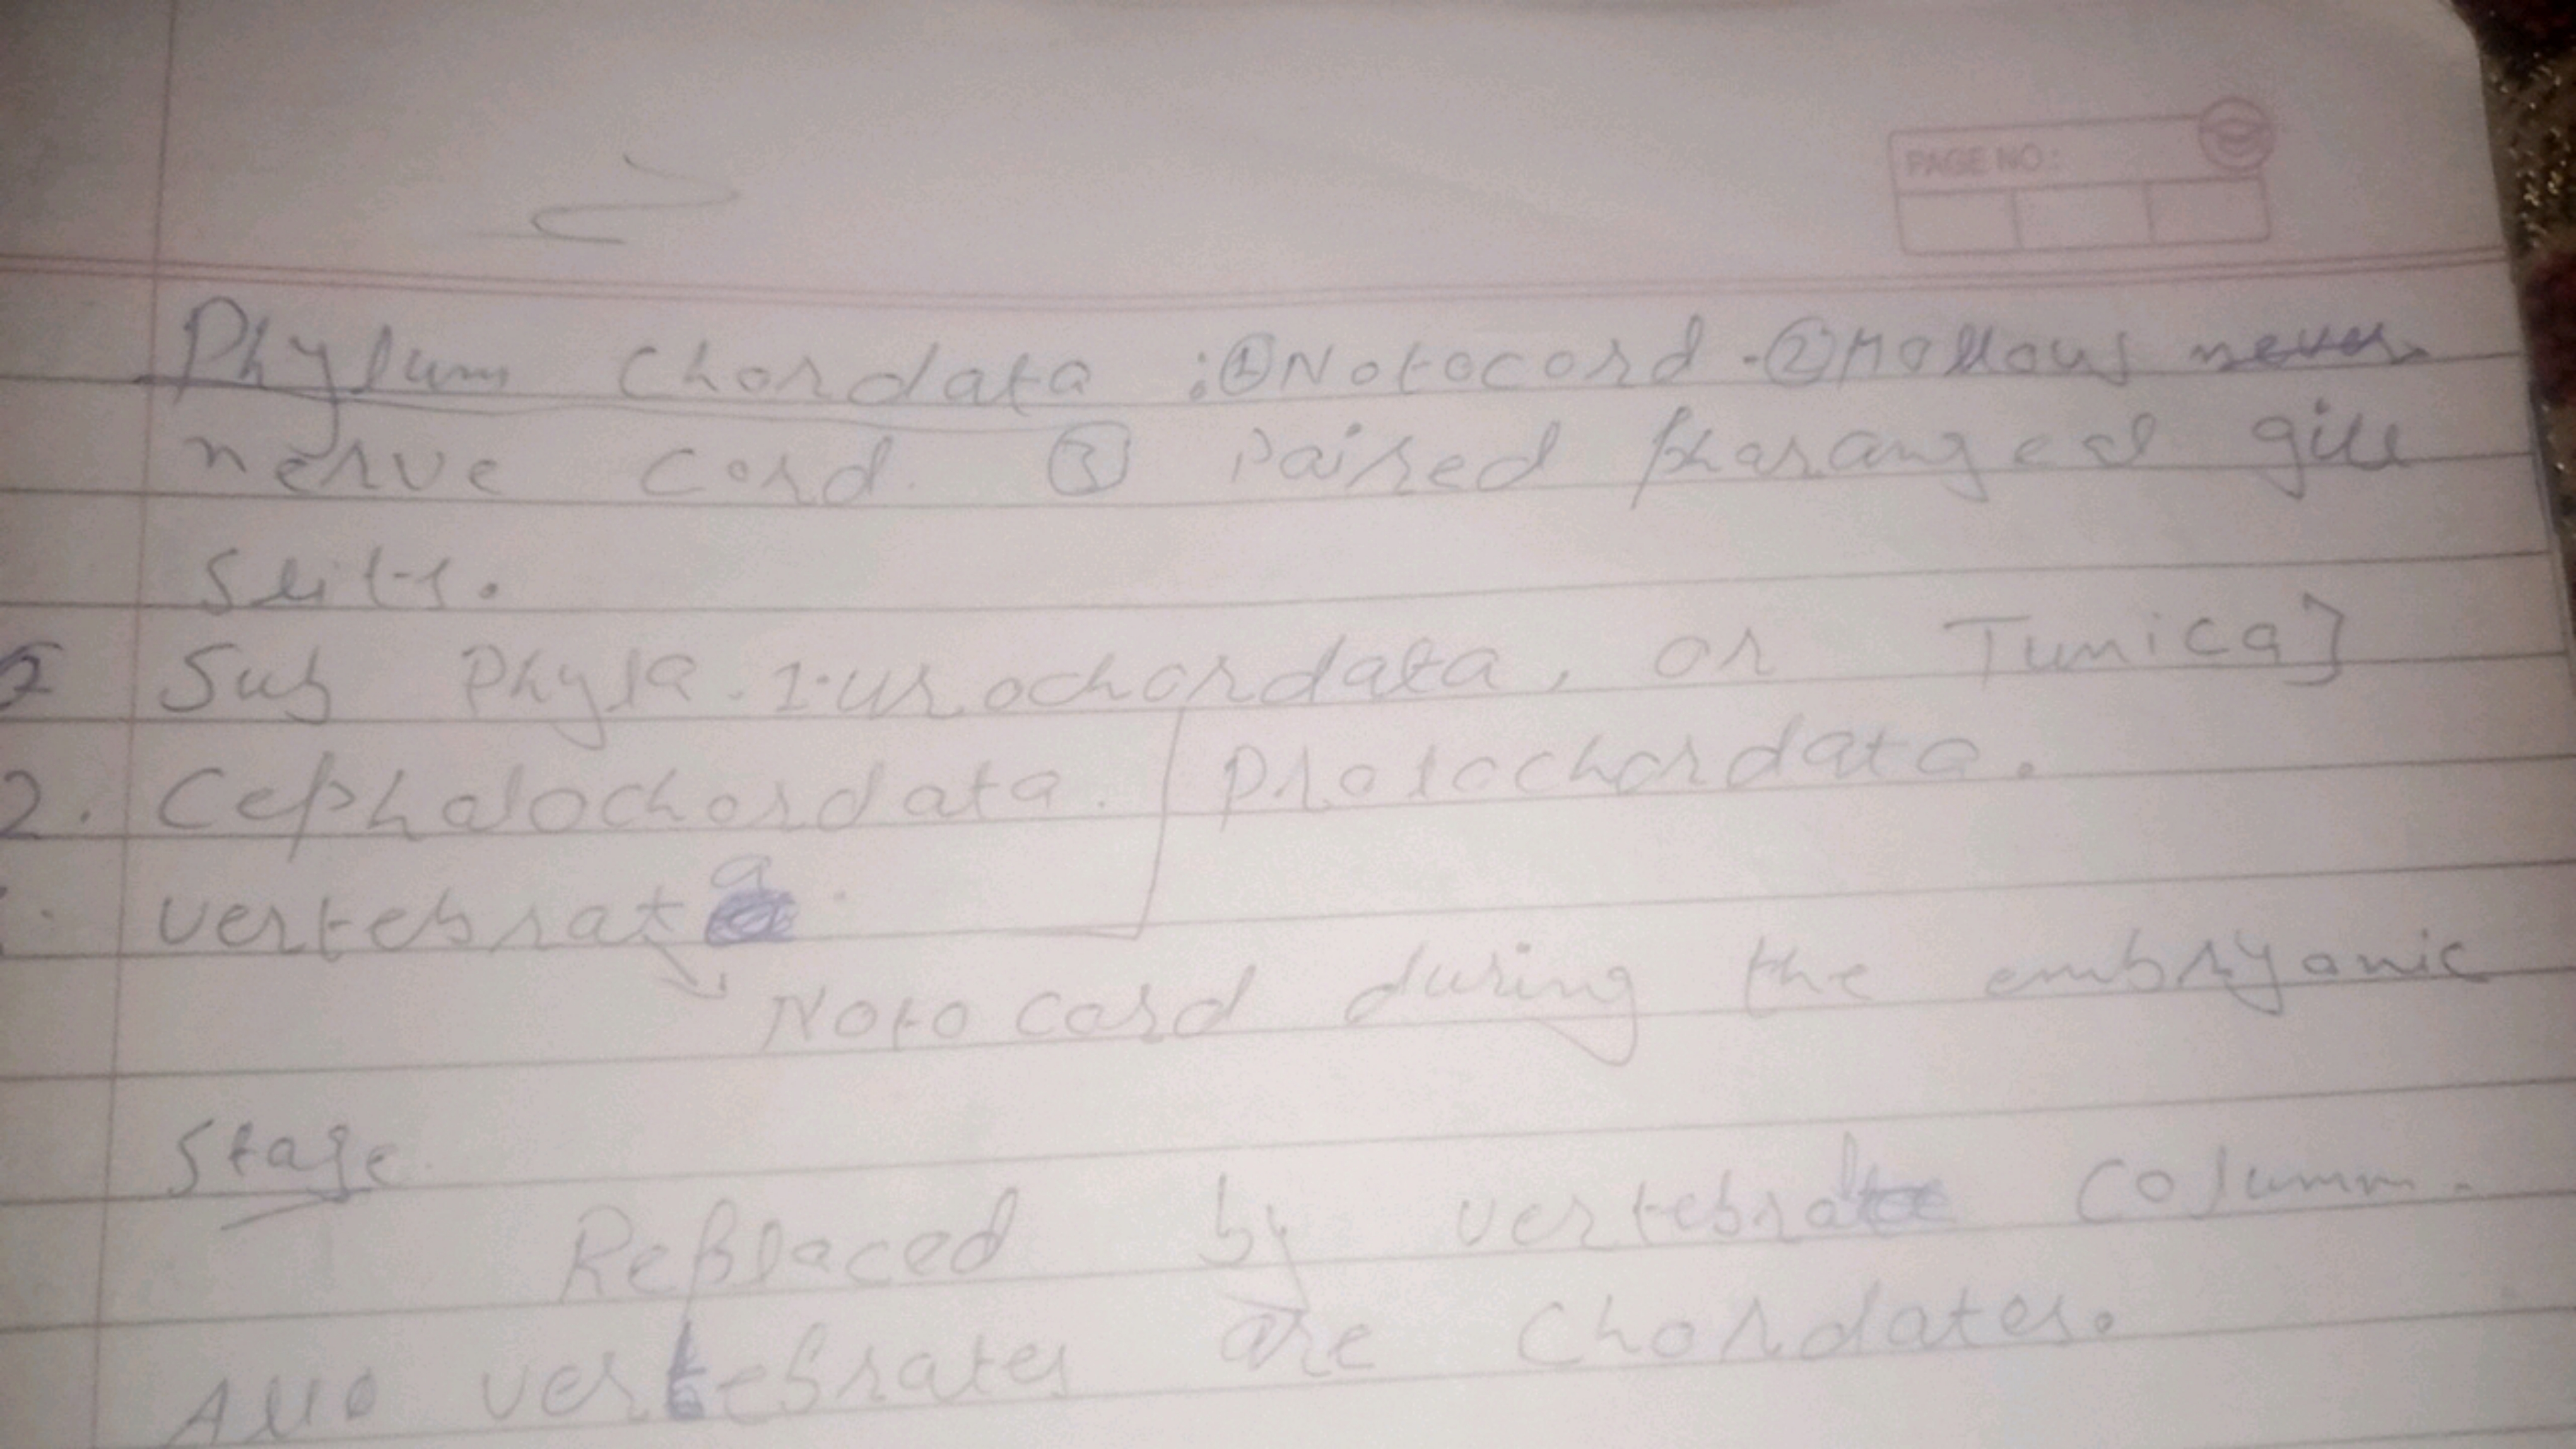 PAGE NO:
Phylum Chordata : ① Notocord - ② Hollous never
nerve cord. ③ Paired pharangeal gill
slits.
Sub Phyla. 1. urochordata, or Tunica]
2. Cephalochordata. Protochordata.
vertebrata.
Notocord during the embryonic
stage
Replaced by vertebral Column.
All vertebrates are chordates.